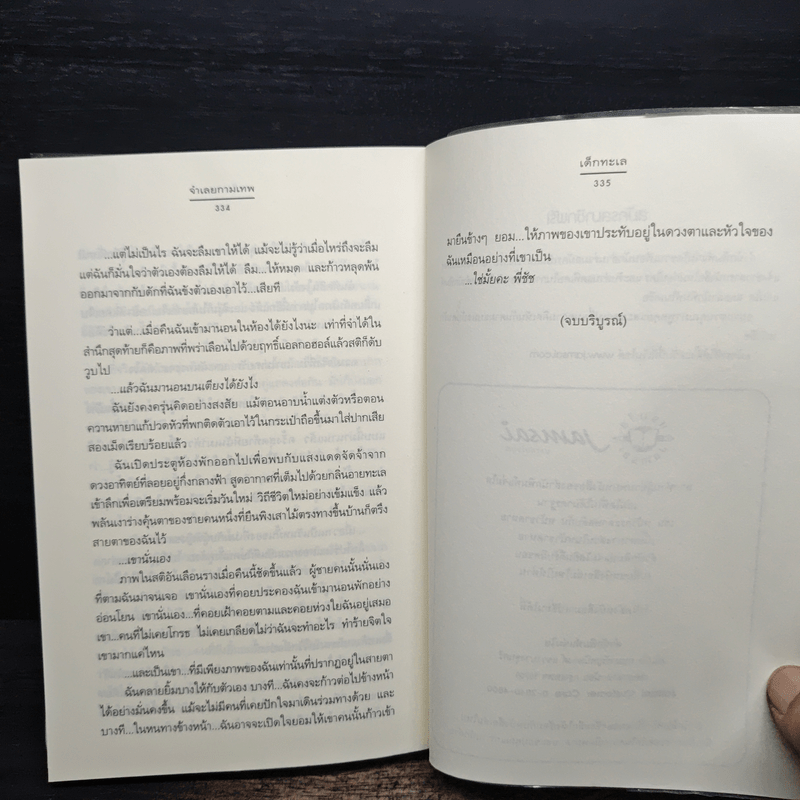 จำเลยกามเทพ
334
...แต่ไม่เป็นไร ฉันจะลืมเขาให้ได้ แม้จะไม่รู้ว่าเมื่อไหร่ถึงจะลืม
แต่ฉันก็มั่นใจว่าตัวเองต้องลืมให้ได้ ลืม...ให้หมด และก้าวหลุดพ้น
ออกมาจากกับดักที่ฉันขังตัวเองเอาไว้...เสียที
ว่าแต่...เมื่อคืนฉันเข้ามานอนในห้องได้ยังไงนะ เท่าที่จำได้ใน
สำนึกสุดท้ายก็คือภาพที่พร่าเลือนไปด้วยฤทธิ์แอลกอฮอล์แล้วสติก็ดับ
วูบไป
...แล้วฉันมานอนบนเตียงได้ยังไง
ฉันยังคงครุ่นคิดอย่างสงสัย แม้ตอนอาบน้ำแต่งตัวหรือตอน
ควานหายาแก้ปวดหัวที่พกติดตัวเอาไว้ในกระเป๋าถือขึ้นมาใส่ปากเสีย
สองเม็ดเรียบร้อยแล้ว
ฉันเปิดประตูห้องพักออกไปเพื่อพบกับแสงแดดจัดจ้าจาก
ดวงอาทิตย์ที่ลอยอยู่กึ่งกลางฟ้า สูดอากาศที่เต็มไปด้วยกลิ่นอายทะเล
เข้าลึกเพื่อเตรียมพร้อมจะเริ่มวันใหม่ วิถีชีวิตใหม่อย่างเข้มแข็ง แล้ว
พลันเงาร่างคุ้นตาของชายคนหนึ่งที่ยืนพิงเสาไม้ตรงทางขึ้นบ้านก็ตรึง
สายตาของฉันไว้
...เขานั่นเอง
ภาพในสติอันเลือนรางเมื่อคืนนี้ชัดขึ้นแล้ว ผู้ชายคนนั้นนั่นเอง
ที่ตามฉันมาจนเจอ เขานั่นเองที่คอยประคองฉันเข้ามานอนพักอย่าง
อ่อนโยน เขานั่นเอง...ที่คอยเฝ้าคอยตามและคอยห่วงใยฉันอยู่เสมอ
เขา...คนที่ไม่เคยโกรธ ไม่เคยเกลียดไม่ว่าฉันจะทำอะไร ทำร้ายจิตใจ
เขามากแค่ไหน
...และเป็นเขา...ที่มีเพียงภาพของฉันเท่านั้นที่ปรากฏอยู่ในสายตา
ฉันคลายยิ้มบางให้กับตัวเอง บางที...ฉันคงจะก้าวต่อไปข้างหน้า
ได้อย่างมั่นคงขึ้น แม้จะไม่มีคนที่เคยปักใจมาเดินร่วมทางด้วย และ
บางที...ในหนทางข้างหน้า...ฉันอาจจะเปิดใจยอมให้เขาคนนั้นก้าวเข้า
เด็กทะเล
335
มายืนข้างๆ ยอม...ให้ภาพของเขาประทับอยู่ในดวงตาและหัวใจของ
ฉันเหมือนอย่างที่เขาเป็น
...ใช่มั้ยคะ พี่ชัช
(จบบริบูรณ์)